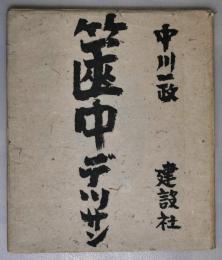 中川一政
筐中デッサン
建設社